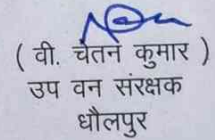 ( वी. चेतन कुमार )
उप वन संरक्षक
धौलपुर